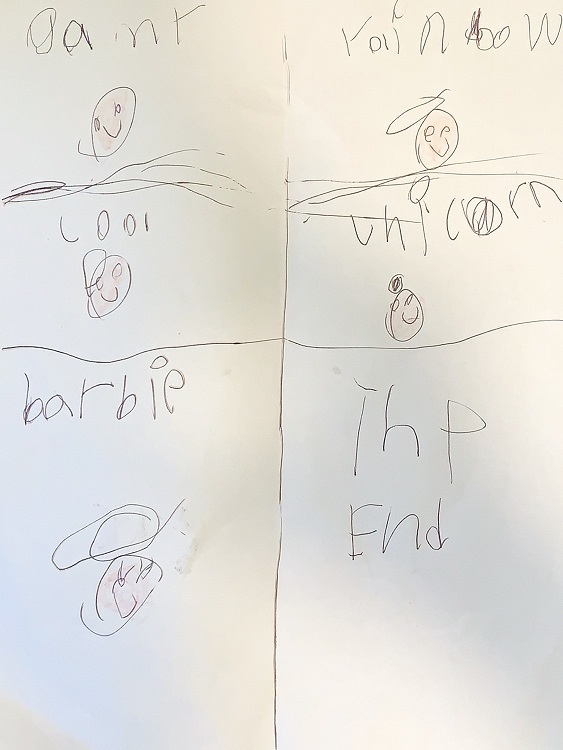 rainbow
cool
unicorn
barbie
The
End